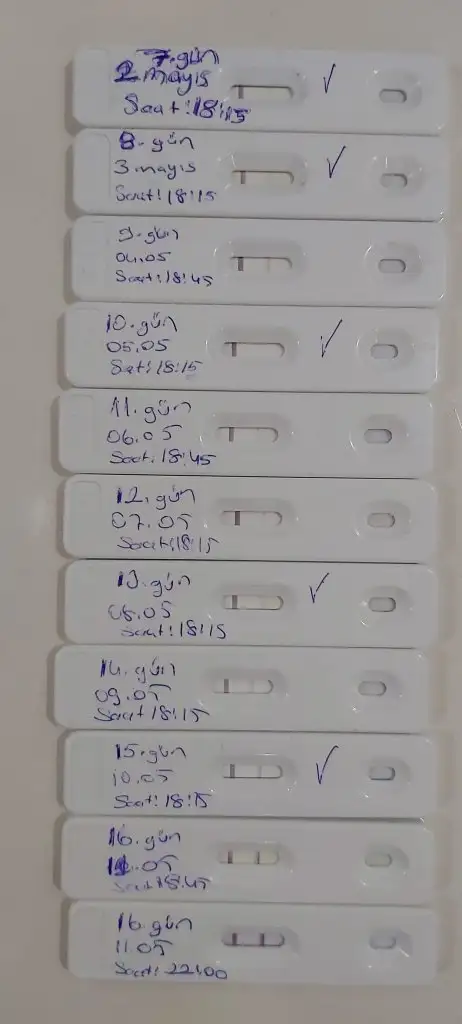 7.gün
2 mayıs
Saat: 18:15
8. gün
3 mayıs
Saat: 18:15
9. gün
04.05
Saat: 18:45
10. gün
05.05
Sat: 18:15
11. gün
06.05
Saat: 18:45
12. gün
07.05
Saat: 18:15
13. gün
08.05
Saat: 18:15
14. gün
09.05
Saat 18:15
15. gün
10.05
Saat: 18:15
16. gün
11.05
Saat 18:45
16. gün
11.05
Saat: 22:00